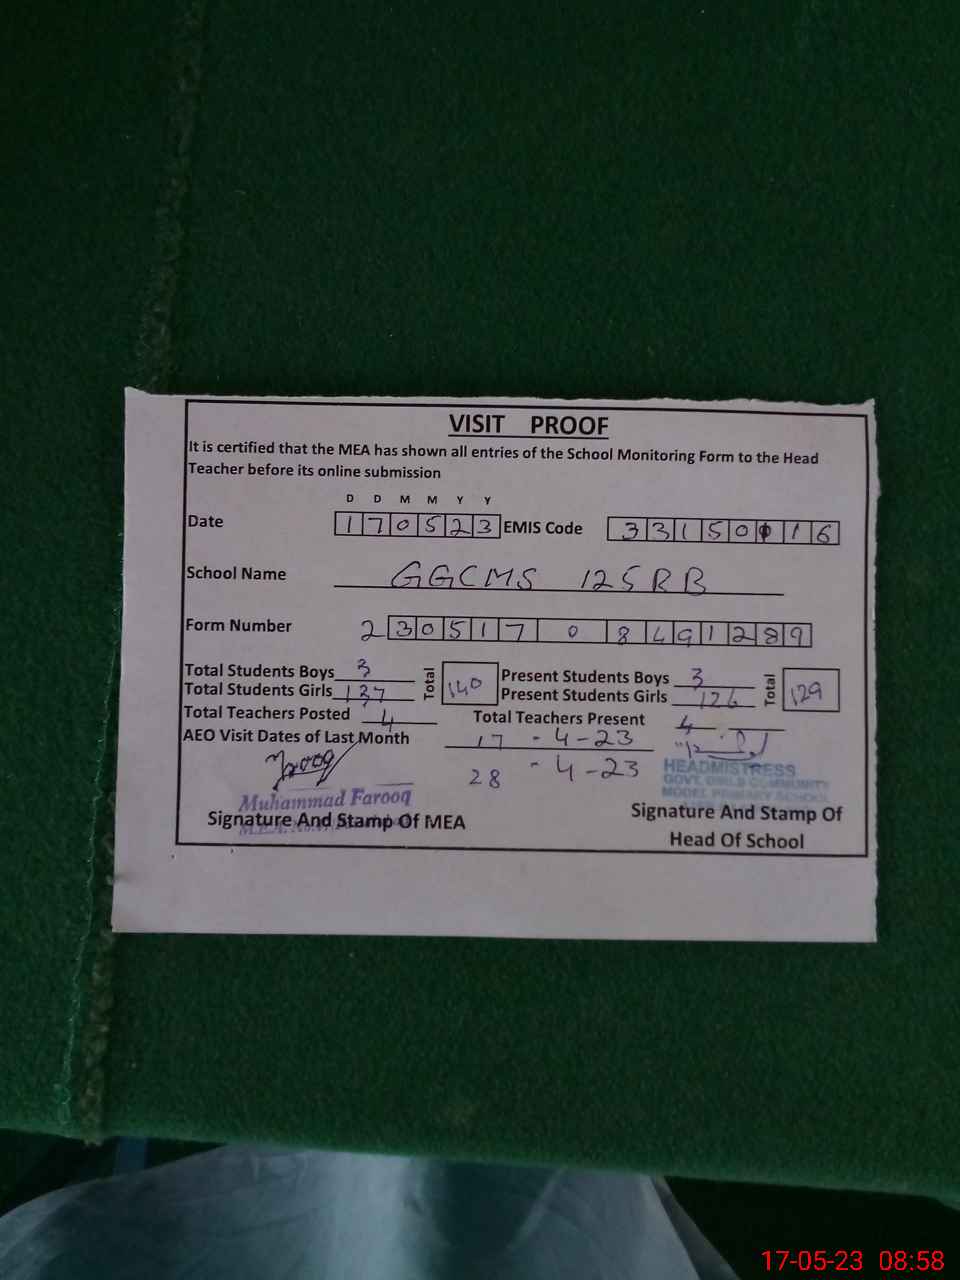 VISIT PROOF
It is certified that the MEA has shown all entries of the School Monitoring Form to the Head
Teacher before its online submission
D D M M Y Y
Date 170523 EMIS Code 33150016
School Name GGCMS 125RB
Form Number 2305170 8491289
Total Students Boys 3 Total 140 Present Students Boys 3 Total 129
Total Students Girls 137 Present Students Girls 126
Total Teachers Posted 4 Total Teachers Present 4
AEO Visit Dates of Last Month 17 - 4 - 23
28 - 4 - 23
Farooq
Muhammad Farooq
HEADMISTRESS
GOVT. GIRLS COMMUNITY
MODEL PRIMARY SCHOOL
Signature And Stamp Of MEA
Signature And Stamp Of
Head Of School
17-05-23 08:58